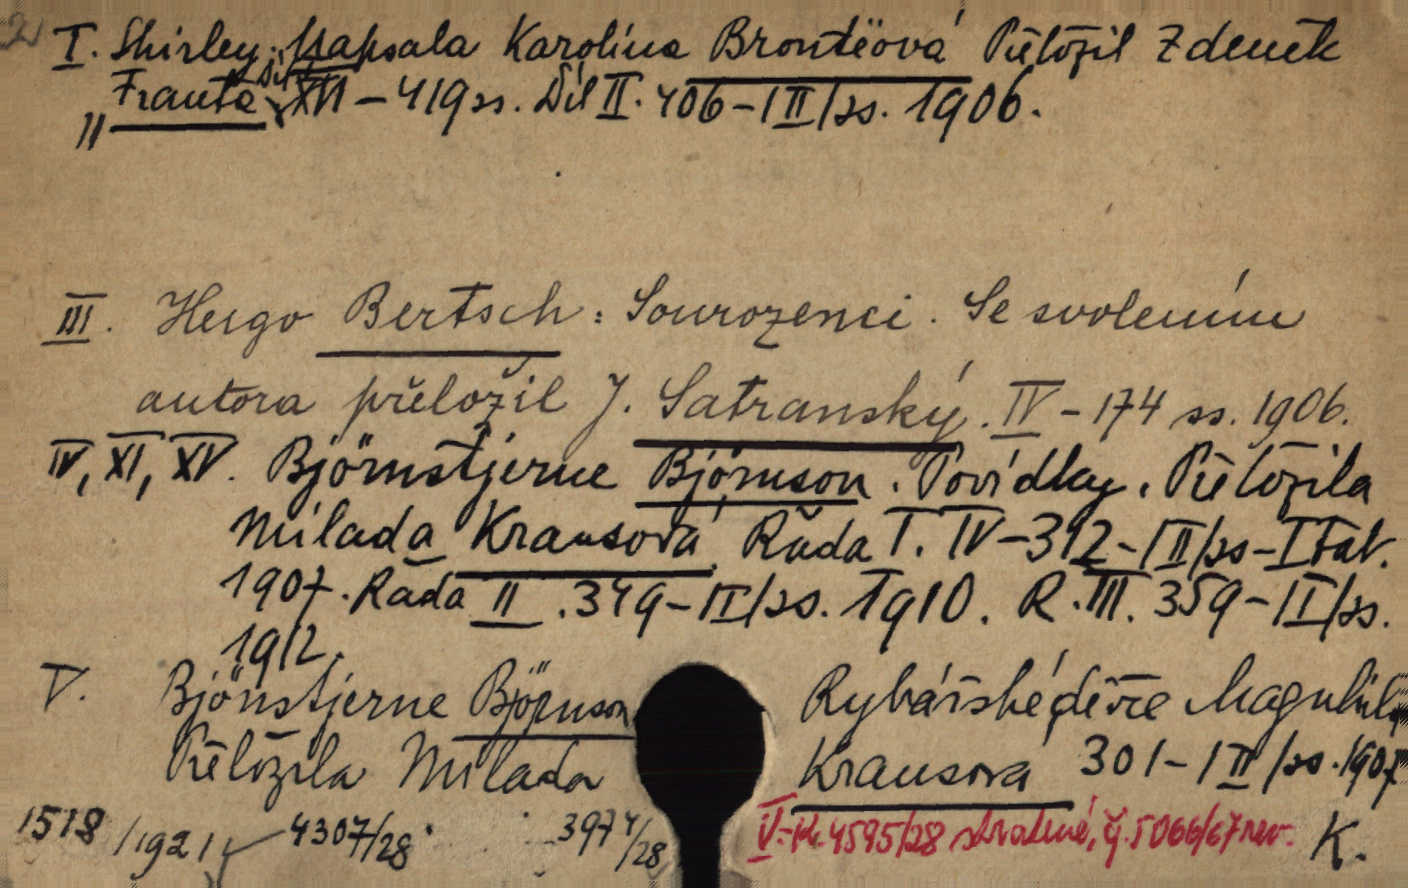 2)
I. Shirley. Napsala Karolina Brontëová Přeložil Zdeněk
Franta. Díl I. XVI – 419 ss. Díl II. 406 – I II/ss. 1906.
II
III. Hugo Bertsch: Sourozenci. Se svolením
autora přeložil J. Satranský. IV – 174 ss. 1906.
IV, XI, XV. Björnstjerne Björnson. Povídky. Přeložila
Milada Krausová. Řada I. IV – 312 – I II/ss – I tab.
1907. Řada II. 349 – II/ss. 1910. R. III. 359 – II/ss.
1912.
V. Björnstjerne Björnson Rybářské děvče
Přeložila Milada Krausova 301 – I II/ss. 1907
1518/1921 4307/28 3974/28 V. – 4595/28 ztracené, č. 5066/67 rev. K.